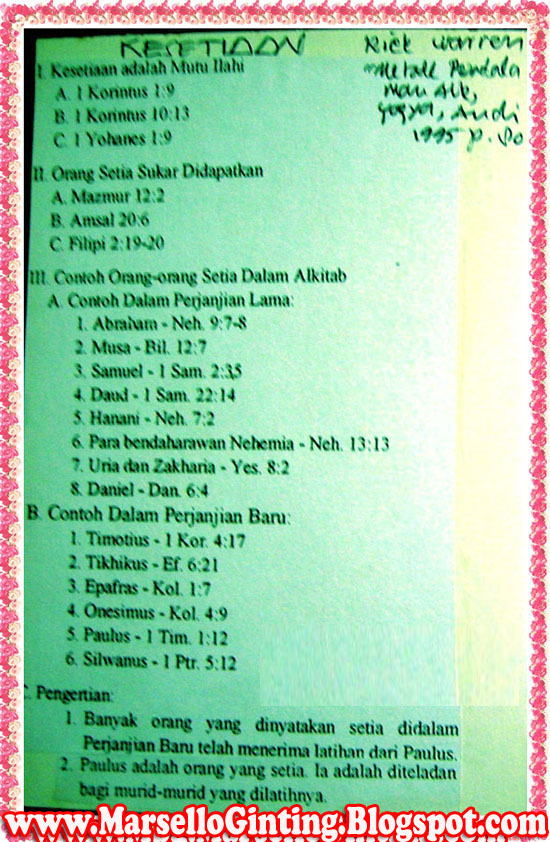 KESETIAAN
Rick Warren
Metode Pendala
man Alk,
Yogya, Andi
1995 p.
I. Kesetiaan adalah Mutu Ilahi
A. 1 Korintus 1:9
B. 1 Korintus 10:13
C. 1 Yohanes 1:9
II. Orang Setia Sukar Didapatkan
A. Mazmur 12:2
B. Amsal 20:6
C. Filipi 2:19-20
III. Contoh Orang-orang Setia Dalam Alkitab
A. Contoh Dalam Perjanjian Lama:
1. Abraham - Neh. 9:7-8
2. Musa - Bil. 12:7
3. Samuel - 1 Sam. 2:35
4. Daud - 1 Sam. 22:14
5. Hanani - Neh. 7:2
6. Para bendaharawan Nehemia - Neh. 13:13
7. Uria dan Zakharia - Yes. 8:2
8. Daniel - Dan. 6:4
B. Contoh Dalam Perjanjian Baru:
1. Timotius - 1 Kor. 4:17
2. Tikhikus - Ef. 6:21
3. Epafras - Kol. 1:7
4. Onesimus - Kol. 4:9
5. Paulus - 1 Tim. 1:12
6. Silwanus - 1 Ptr. 5:12
C. Pengertian:
1. Banyak orang yang dinyatakan setia didalam
Perjanjian Baru telah menerima latihan dari Paulus.
2. Paulus adalah orang yang setia. Ia adalah diteladan
bagi murid-murid yang dilatihnya.
www.MarselloGinting.Blogspot.com